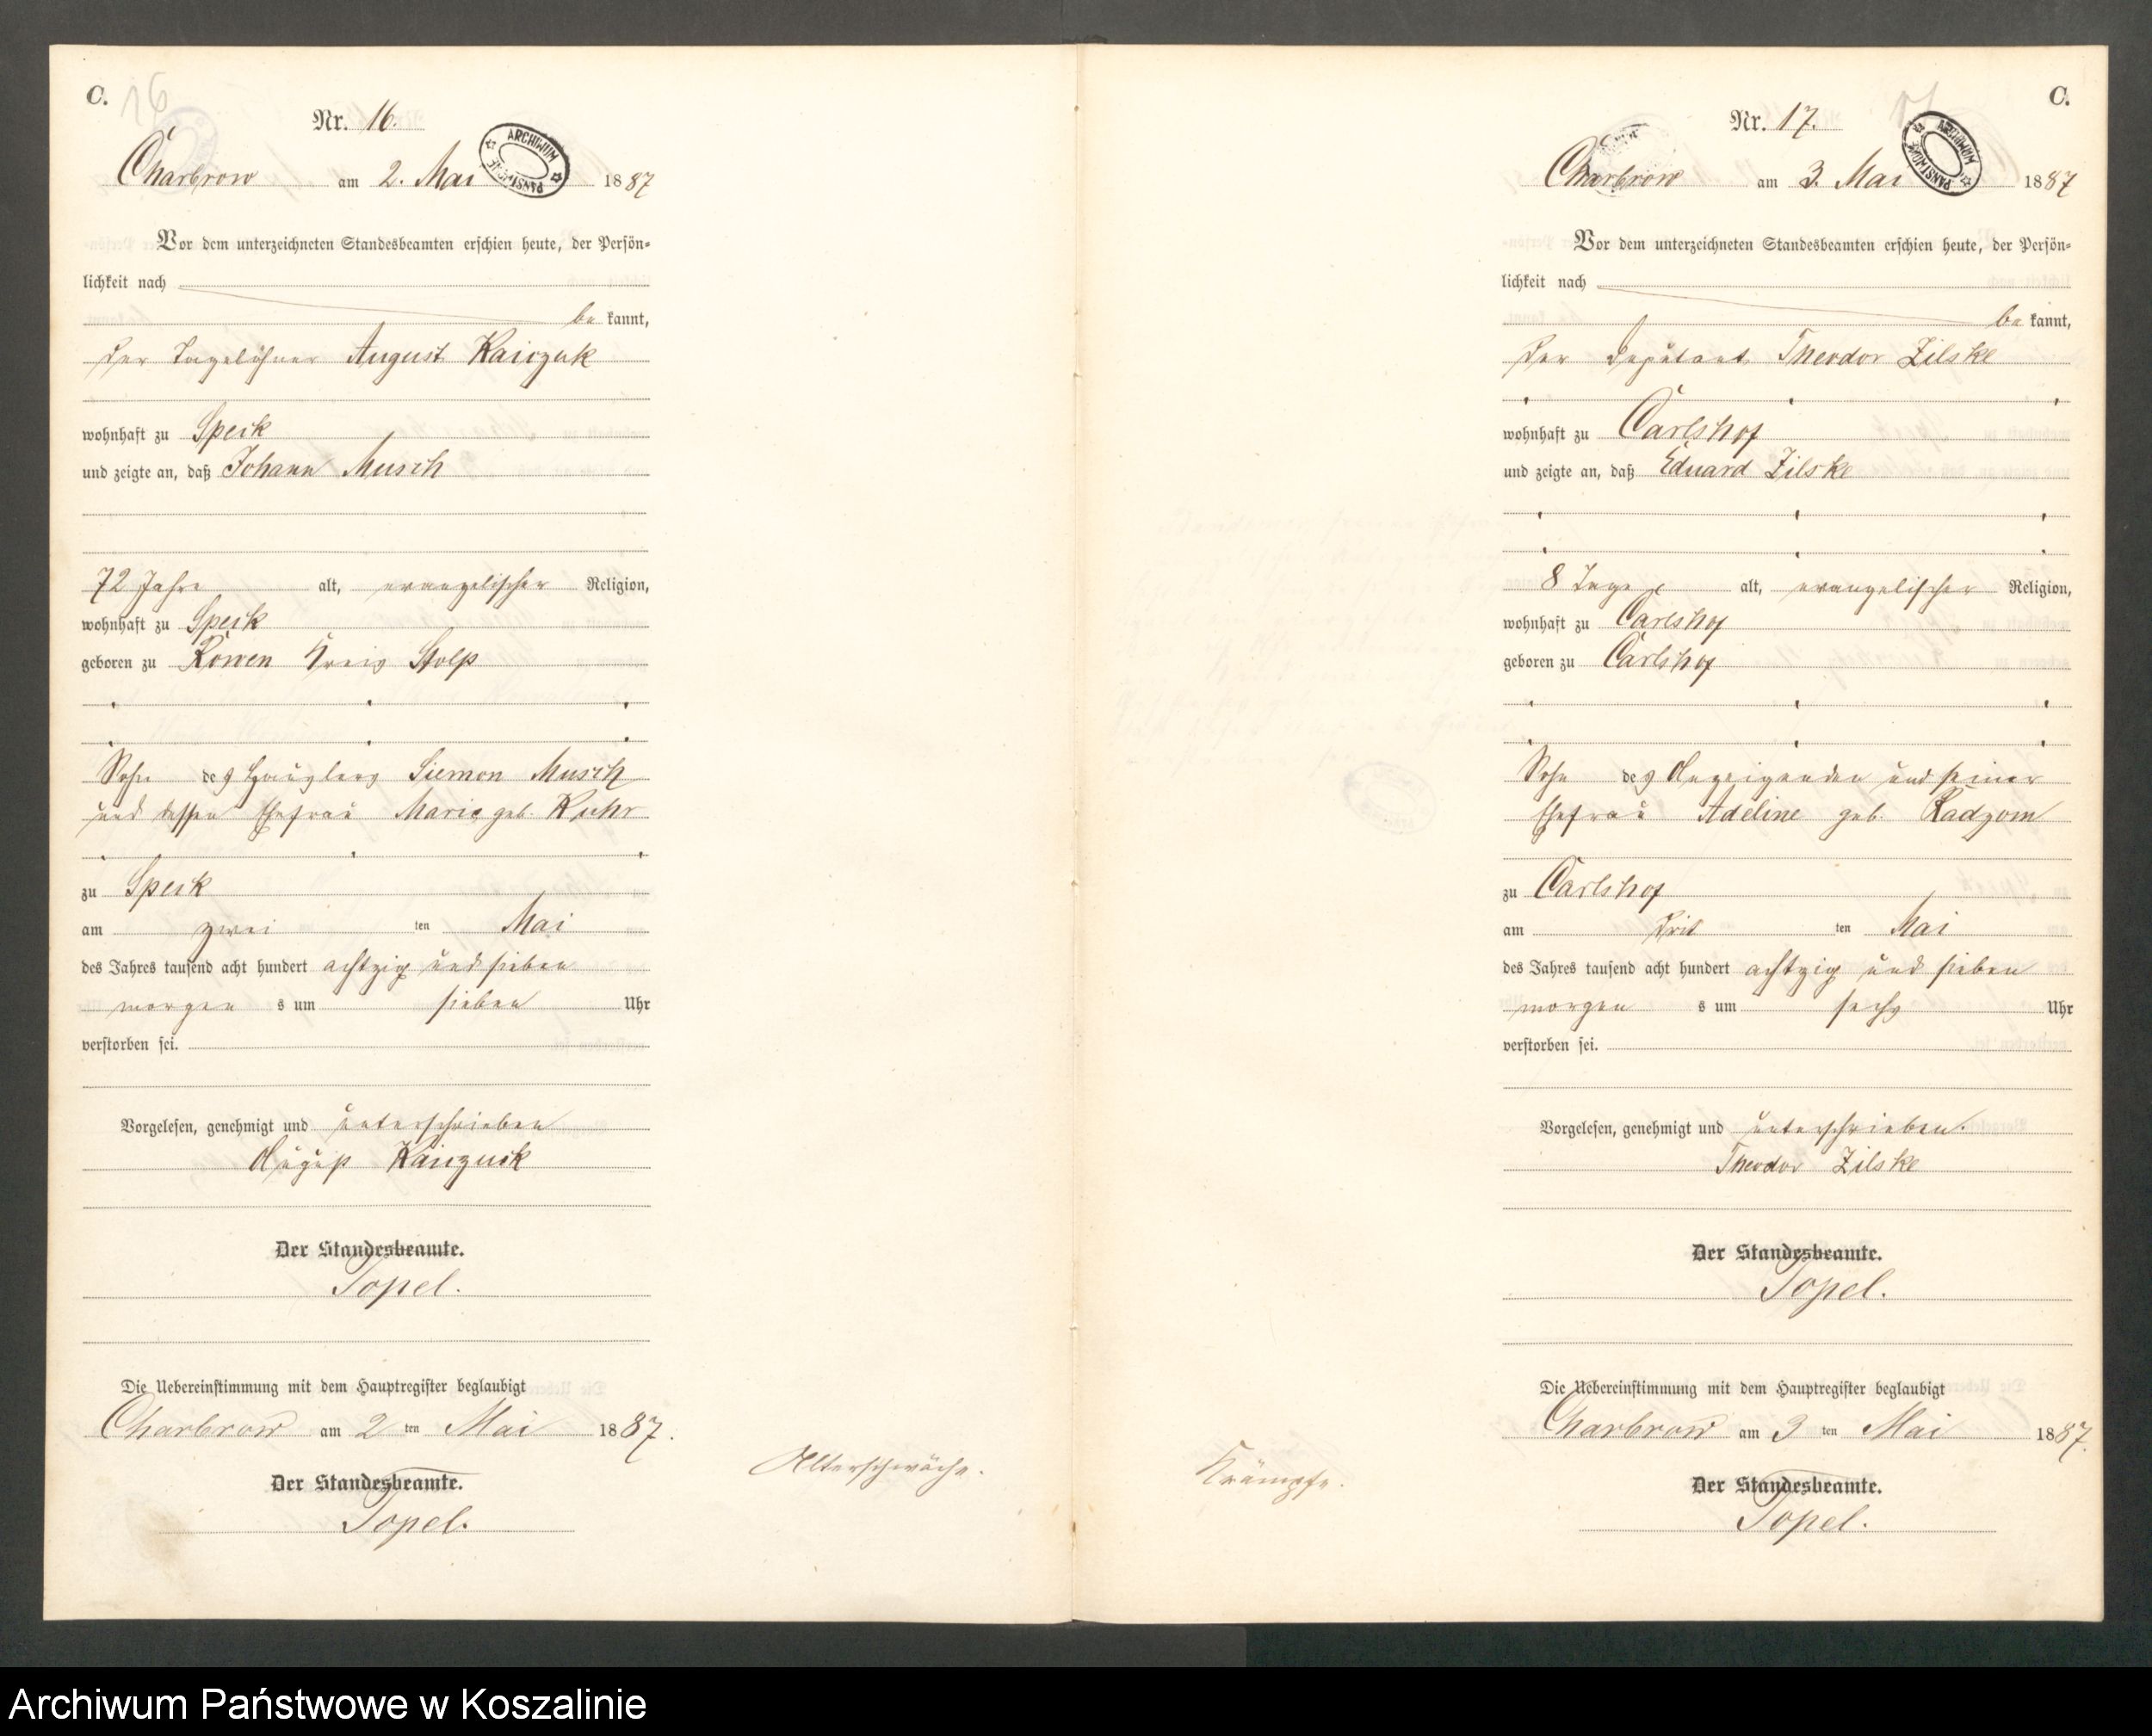 C.
16
Nr. 16.
ARCHIWUM PAŃSTWOWE
Charbrow am 2. Mai 1887
Vor dem unterzeichneten Standesbeamten erschien heute, der Persön-
lichkeit nach
be kannt,
der Tagelöhner August Kaiczuk
wohnhaft zu Speck
und zeigte an, daß Johann Musch
72 Jahre alt, evangelischer Religion,
wohnhaft zu Speck
geboren zu Rowen Kreis Stolp
Sohn des Häuslers Siemon Musch
und dessen Ehefrau Marie geb. Kuhr
zu Speck
am zwei ten Mai
des Jahres tausend acht hundert achtzig und sieben
morgen s um sieben Uhr
verstorben sei.
Vorgelesen, genehmigt und unterschrieben
August Kaiczuck
Der Standesbeamte.
Topel.
Die Uebereinstimmung mit dem Hauptregister beglaubigt
Charbrow am 2 ten Mai 1887.
Der Standesbeamte.
Topel.
Alterschwäche.
C.
17
Nr. 17.
ARCHIWUM PAŃSTWOWE
Charbrow am 3. Mai 1887
Vor dem unterzeichneten Standesbeamten erschien heute, der Persön-
lichkeit nach
be kannt,
der Deputant Theodor Zilske
wohnhaft zu Carlshof
und zeigte an, daß Eduard Zilske
8 Tage alt, evangelischer Religion,
wohnhaft zu Carlshof
geboren zu Carlshof
Sohn des Anzeigenden und seiner
Ehefrau Adeline geb. Radzom
zu Carlshof
am drit ten Mai
des Jahres tausend acht hundert achtzig und sieben
morgen s um sechs Uhr
verstorben sei.
Vorgelesen, genehmigt und unterschrieben.
Theodor Zilske
Der Standesbeamte.
Topel.
Die Uebereinstimmung mit dem Hauptregister beglaubigt
Charbrow am 3 ten Mai 1887.
Der Standesbeamte.
Topel.
Krämpfe.
Archiwum Państwowe w Koszalinie